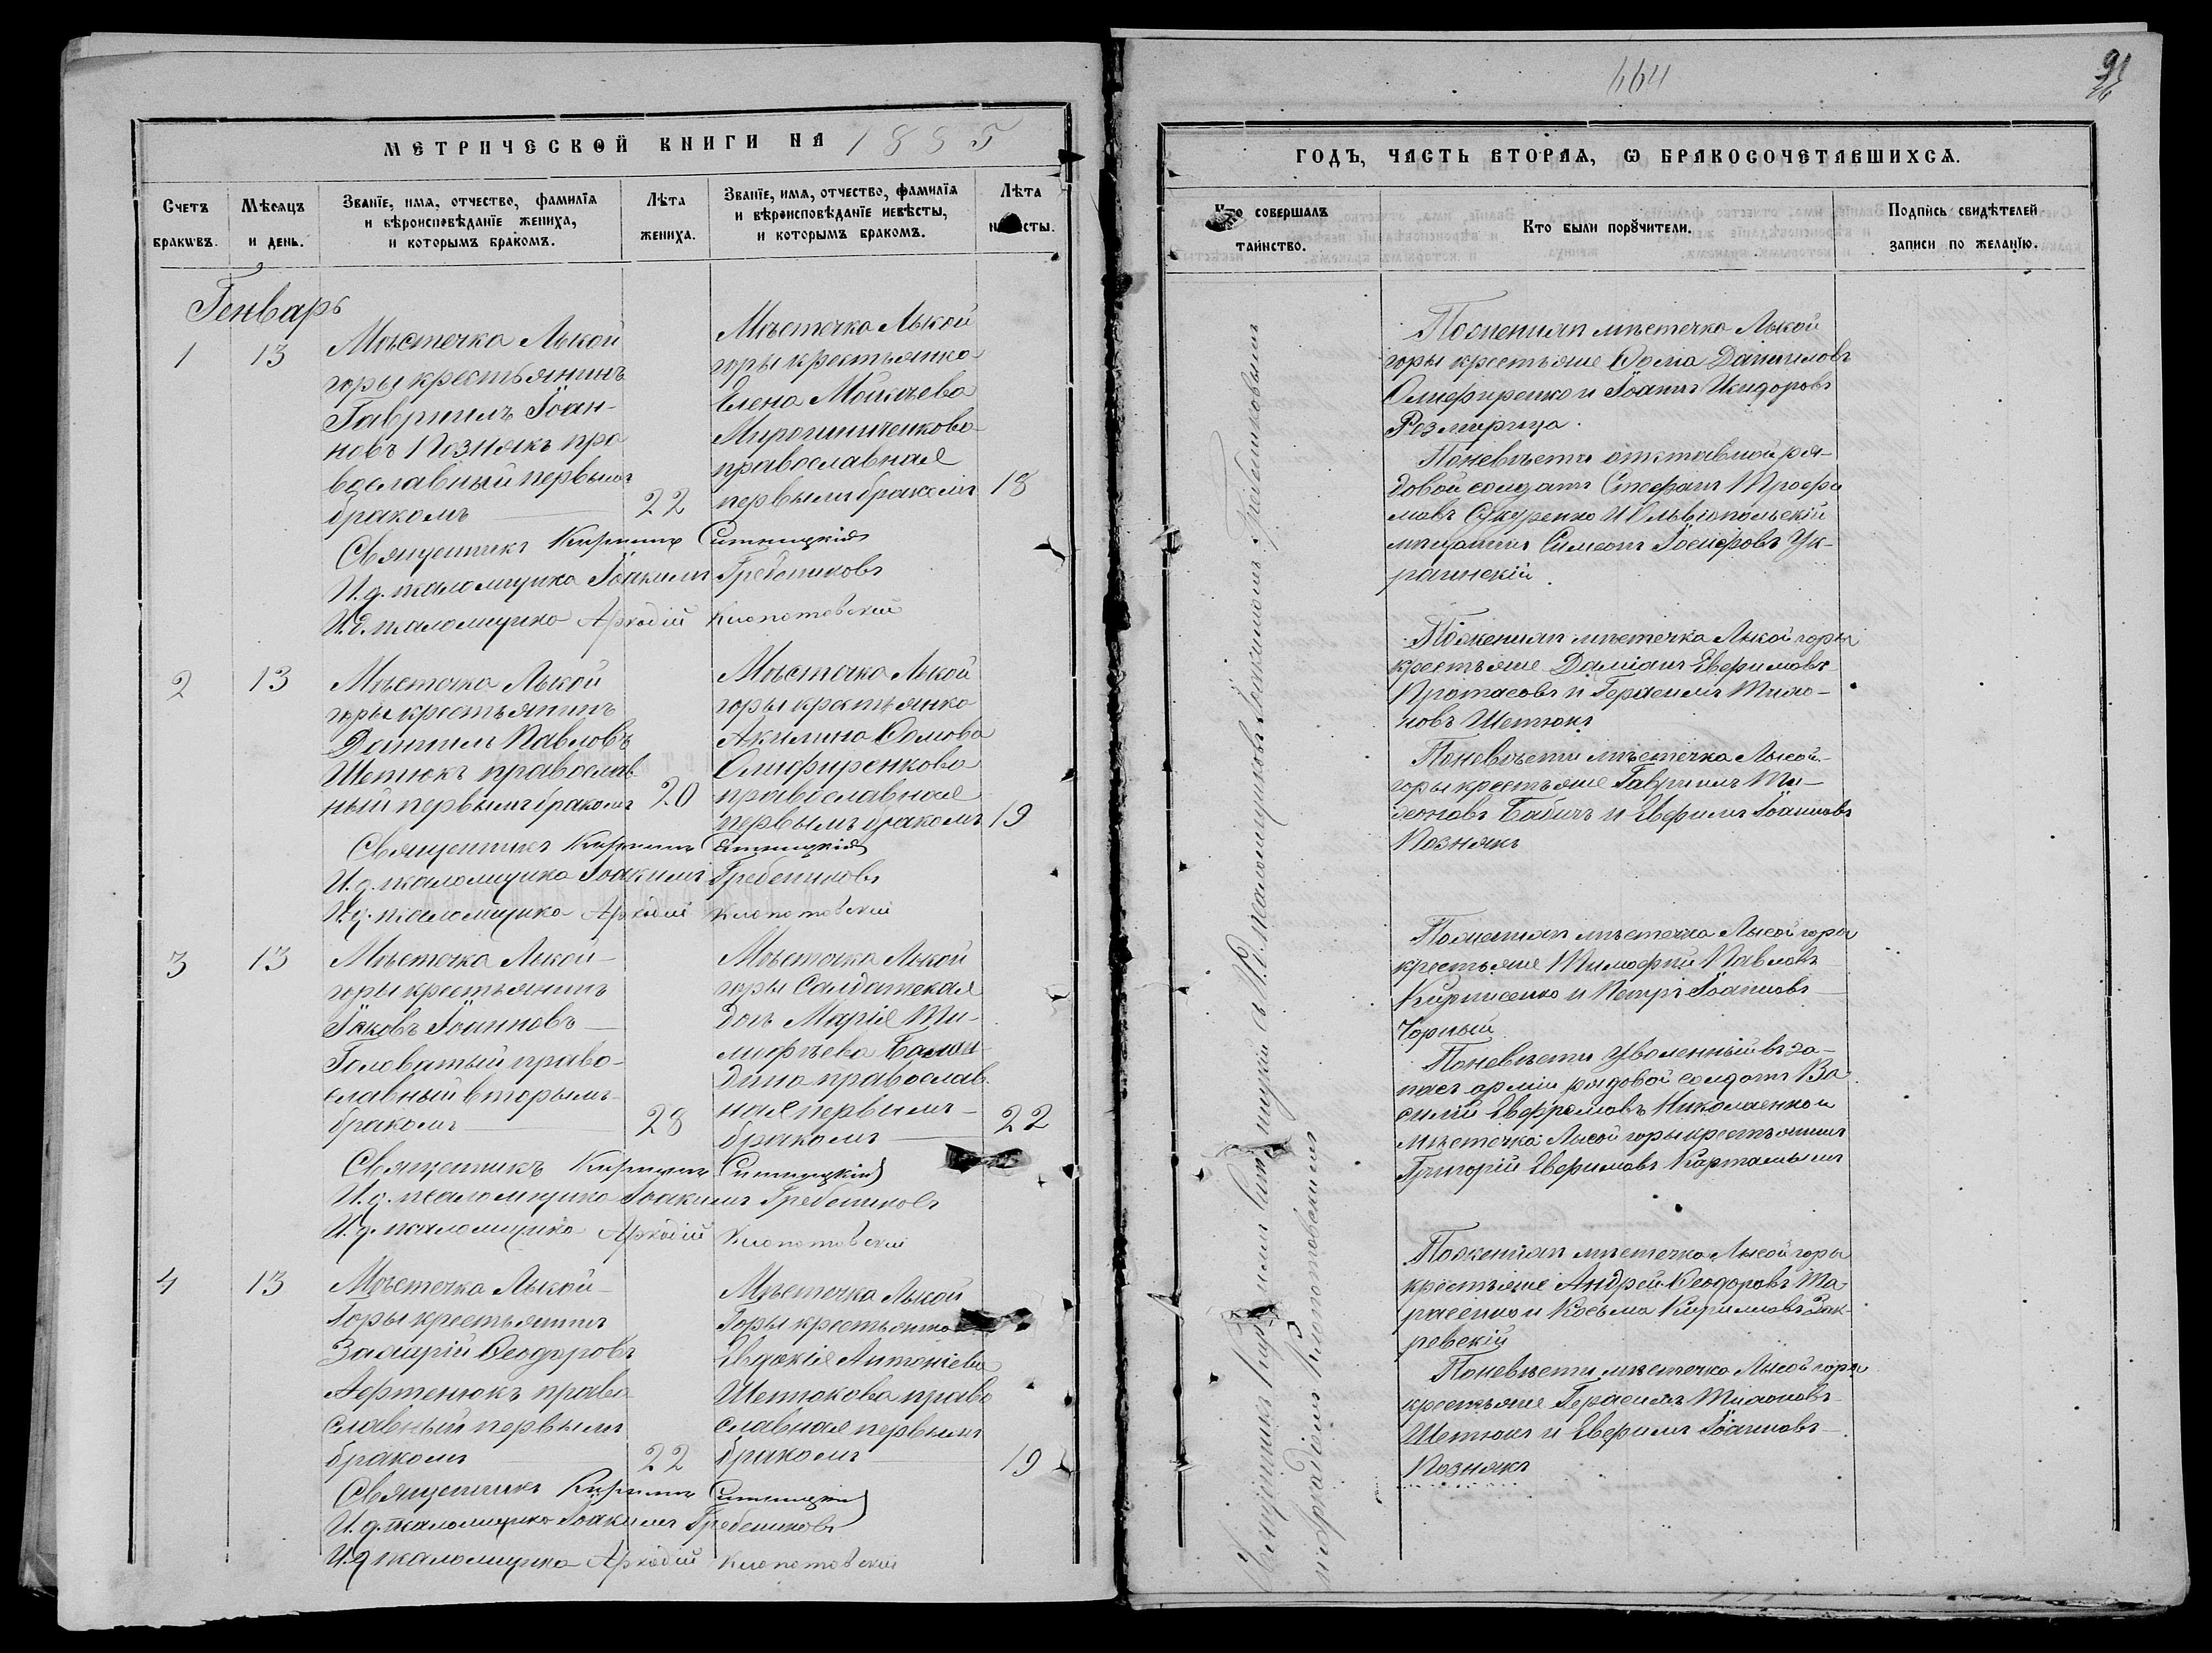 МЕТРИЧЕСКОЙ КНИГИ НА 1885
Счетъ браковъ.
Мѣсяцъ и день.
Званїе, имя, отчество, фамилїя
и вѣроисповѣданїе жениха,
и которымъ бракомъ.
Лѣта
жениха.
Званїе, имя, отчество, фамилїя
и вѣроисповѣданїе невѣсты,
и которымъ бракомъ.
Лѣта
невѣсты.
Генварь
1 13
Мѣстечка Лысой
горы крестьянинъ
Гавріилъ Іоан-
новъ Познякъ пра
вославный первымъ
бракомъ 22
Мѣстечка Лысой
горы крестьянка
Елена Моисѣева
Мирошниченкова
православная
первымъ бракомъ 18
Священникъ Кириллъ Ситницкій
И. д. псаломщика Іоакимъ Гребенниковъ
И. д. псаломщика Аркадій Клопотовскій
2 13
Мѣстечка Лысой
горы крестьянинъ
Даніилъ Павловъ
Шетюкъ православ
ный первымъ бракомъ 20
Мѣстечка Лысой
горы крестьянка
Акилина Ѳомова
Олифиренкова
православная
первымъ бракомъ 19
Священникъ Кириллъ Ситницкій
И. д. псаломщика Іоакимъ Гребенниковъ
И. д. псаломщика Аркадій Клопотовскій
3 13
Мѣстечка Лысой
горы крестьянинъ
Іаковъ Іоанновъ
Головатый право-
славный вторымъ
бракомъ 28
Мѣстечка Лысой
горы Салдатская
дочь Марія Ти-
моѳѣева
дина православ
ная первымъ
бракомъ 22
Священникъ Кириллъ Ситницкій
И. д. псаломщика Іоакимъ Гребенниковъ
И. д. псаломщика Аркадій Клопотовскій
4 13
Мѣстечка Лысой
Горы крестьянинъ
Захарій Ѳеодоровъ
Афтенюкъ право
славный первымъ
бракомъ 22
Мѣстечка Лысой
Горы крестьянка
Евдокія Антоніева
Шетюкова право
славная первымъ
бракомъ 19
Священникъ Кириллъ Ситницкій
И. д. псаломщика Іоакимъ Гребенниковъ
И. д. псаломщика Аркадій Клопотовскій
464
ГОДЪ, ЧАСТЬ ВТОРАЯ, Ѡ БРАКОСОЧЕТАВШИХСЯ.
Кто совершалъ
таинство.
Кто были порꙋчители.
Подпись свидѣтелей
записи по желанїю.
Священникъ Кириллъ Ситницкій съ И. д. псаломщиковъ Іоакимомъ Гребенниковымъ
и Аркадіемъ Клопотовскимъ
По женихѣ мѣстечка Лысой
горы крестьяне Ѳома Даніиловъ
Олифиренко и Іоаннъ Исидоровъ
Розмирица.
По невѣстѣ отставной ря-
довой солдатъ Стефанъ Трофи
мовъ и Ольвіопольскій
мѣщанинъ Симеонъ Іосифовъ Ук-
раинскій.
По женихѣ мѣстечка Лысой горы
крестьяне Даміанъ Евфимовъ
Протасовъ и Герасимъ Тихо-
новъ Шетюкъ
По невѣстѣ мѣстечка Лысой
горы крестьяне Гавріилъ
Бабичъ и Евфимъ Іоанновъ
Познякъ
По женихѣ мѣстечка Лысой горы
крестьяне Тимофей Павловъ
Кирписенко и Петръ Іоанновъ
Чорный
По невѣстѣ уволенный въ за-
пасъ арміи рядовой солдатъ Ва
силій Ефремовъ Николаенко и
мѣстечка Лысой горы крестьянинъ
Григорій Евфимовъ
По женихѣ мѣстечка Лысой горы
крестьяне Андрей Ѳеодоровъ Та
расенко и Косьма Кирилловъ Зак-
ревскій
По невѣстѣ мѣстечка Лысой горы
крестьяне Герасимъ Тихоновъ
Шетюкъ и Евфимъ Іоанновъ
Познякъ